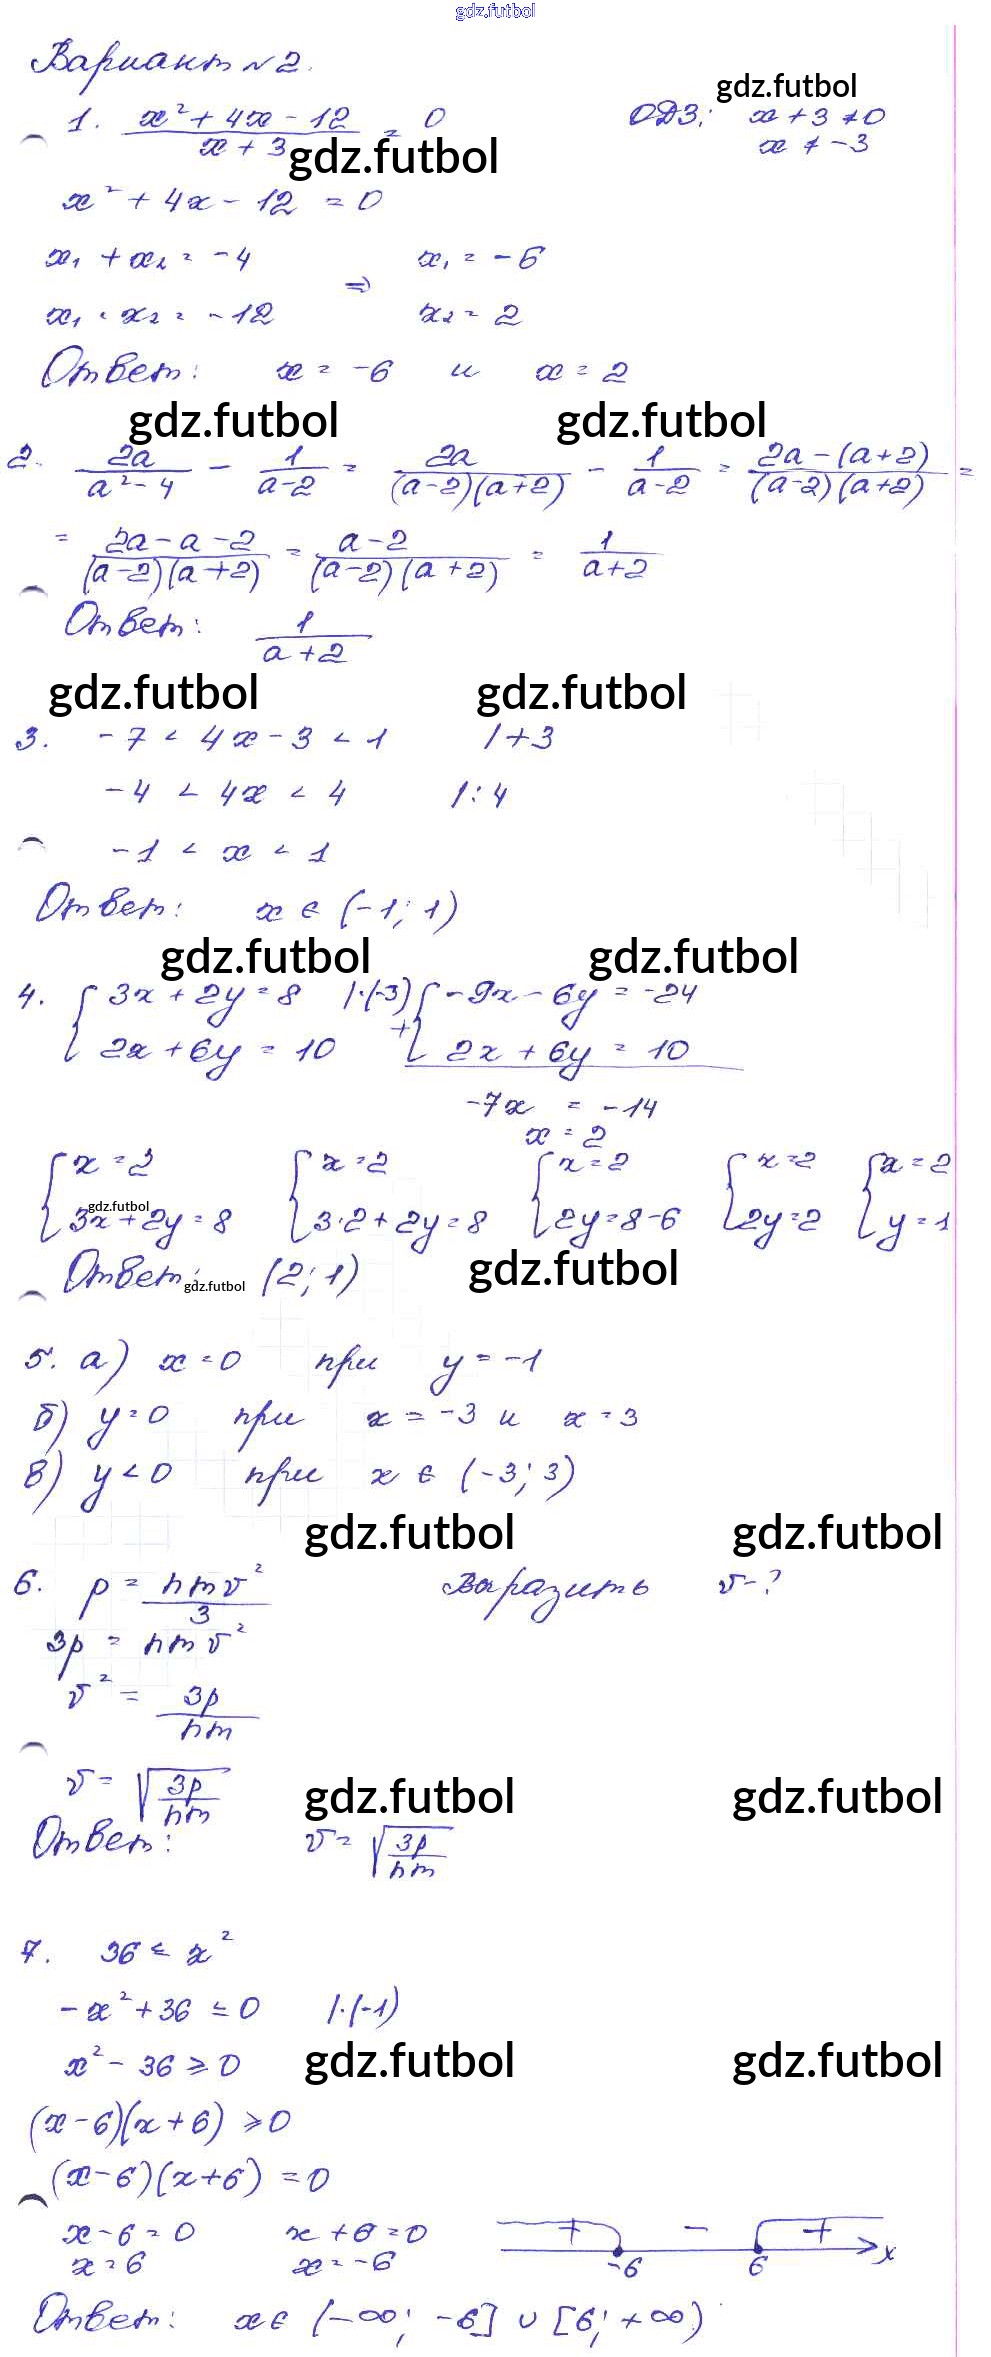 gdz.futbol
Вариант №2.
gdz.futbol
1. (x² + 4x - 12)/(x + 3) = 0 ОДЗ: x + 3 ≠ 0
gdz.futbol x ≠ -3
x² + 4x - 12 = 0
x₁ + x₂ = -4 x₁ = -6
⇒
x₁ · x₂ = -12 x₂ = 2
Ответ: x = -6 и x = 2
gdz.futbol gdz.futbol
2. 2a/(a² - 4) - 1/(a-2) = 2a/((a-2)(a+2)) - 1/(a-2) = (2a-(a+2))/((a-2)(a+2)) =
= (2a-a-2)/((a-2)(a+2)) = (a-2)/((a-2)(a+2)) = 1/(a+2)
Ответ: 1/(a+2)
gdz.futbol gdz.futbol
3. -7 < 4x - 3 < 1 | +3
-4 < 4x < 4 | : 4
-1 < x < 1
Ответ: x ∈ (-1; 1)
gdz.futbol gdz.futbol
4. { 3x + 2y = 8 |·(-3) { -9x - 6y = -24
{ 2x + 6y = 10 + { 2x + 6y = 10
-7x = -14
x = 2
{ x = 2 { x = 2 { x = 2 { x = 2 { x = 2
gdz.futbol
{ 3x + 2y = 8 { 3·2 + 2y = 8 { 2y = 8-6 { 2y = 2 { y = 1
Ответ: gdz.futbol (2; 1) gdz.futbol
5. а) x = 0 при y = -1
б) y = 0 при x = -3 и x = 3
в) y < 0 при x ∈ (-3; 3)
gdz.futbol gdz.futbol
6. p = nmv²/3 Выразить v-?
3p = nmv²
v² = 3p/nm
v = √(3p/nm) gdz.futbol gdz.futbol
Ответ: v = √(3p/nm)
7. 36 ≤ x²
-x² + 36 ≤ 0 |·(-1)
x² - 36 ≥ 0 gdz.futbol gdz.futbol
(x-6)(x+6) ≥ 0
(x-6)(x+6) = 0
x-6 = 0 x+6=0 + - +
x = 6 x = -6 -6 6 x
Ответ: x ∈ (-∞; -6] ∪ [6; +∞)